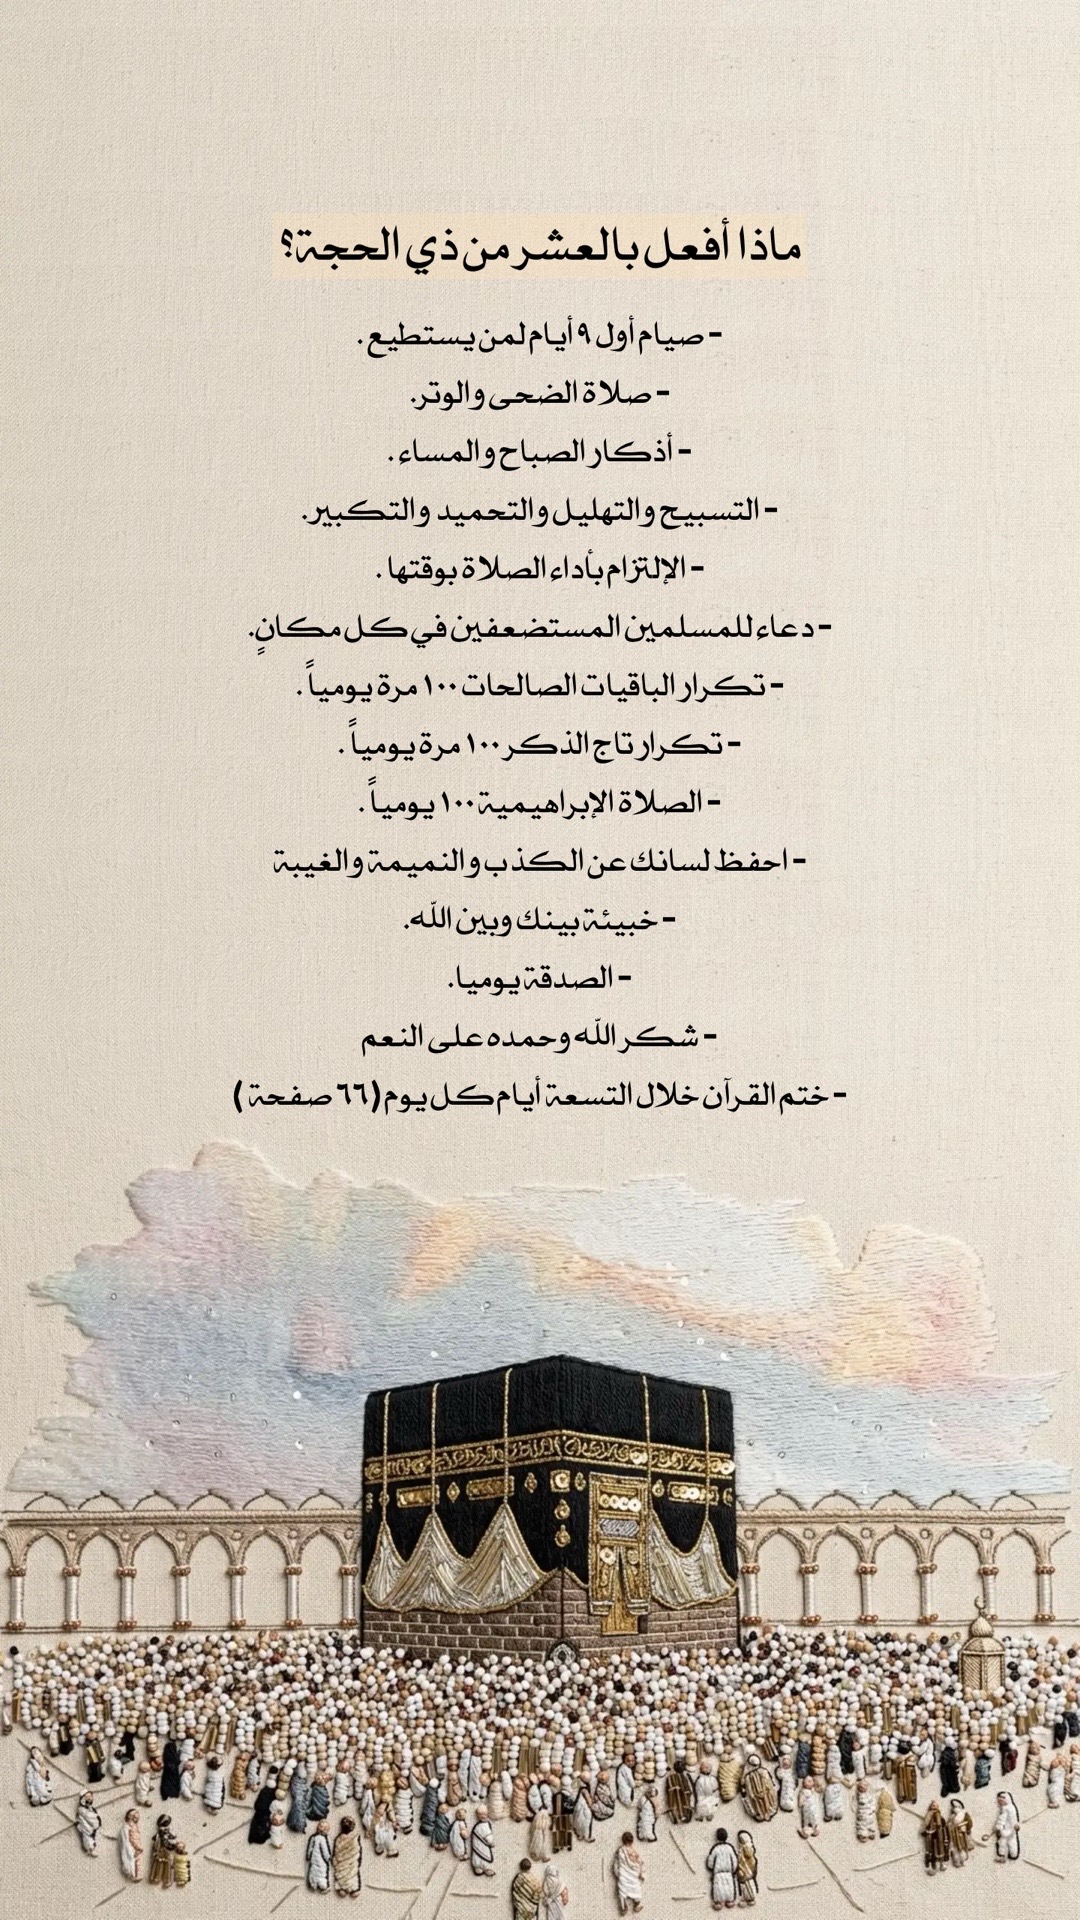 ماذا أفعل بالعشر من ذي الحجة؟
- صيام أول ٩ أيام لمن يستطيع.
- صلاة الضحى والوتر.
- أذكار الصباح والمساء.
- التسبيح والتهليل والتحميد والتكبير.
- الإلتزام بأداء الصلاة بوقتها.
- دعاء للمسلمين المستضعفين في كل مكانٍ.
- تكرار الباقيات الصالحات ١٠٠ مرة يومياً.
- تكرار تاج الذكر ١٠٠ مرة يومياً.
- الصلاة الإبراهيمية ١٠٠ يومياً.
- احفظ لسانك عن الكذب والنميمة والغيبة
- خبيئة بينك وبين الله.
- الصدقة يوميا.
- شكر الله وحمده على النعم
- ختم القرآن خلال التسعة أيام كل يوم (٦٦ صفحة)